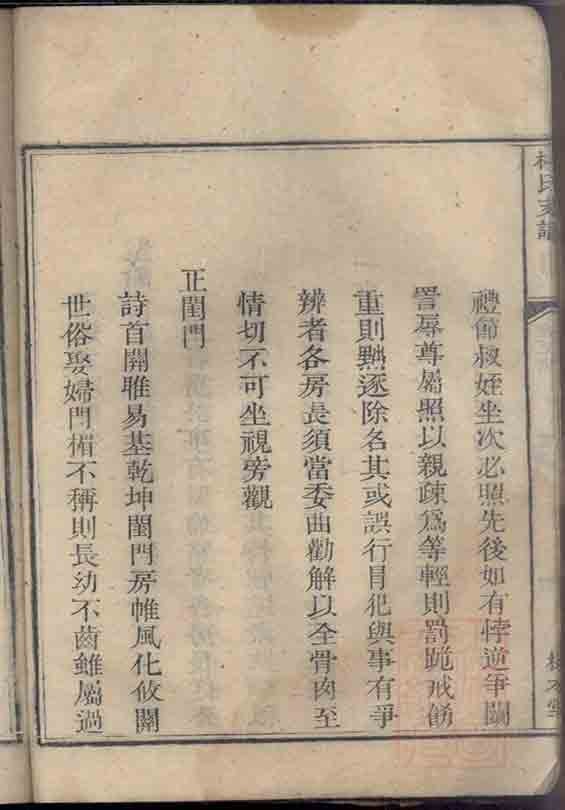 禮節叔姪坐次必照先後如有悖逆爭鬭
詈辱尊屬照以親疎爲等輕則罰跪戒飭
重則黜逐除名其或誤行冒犯與事有爭
辨者各房長須當委曲勸解以全骨肉至
情切不可坐視旁觀
正閨門
詩首關雎易基乾坤閨門房帷風化攸關
世俗娶婦門楣不稱則長幼不齒雖屬過